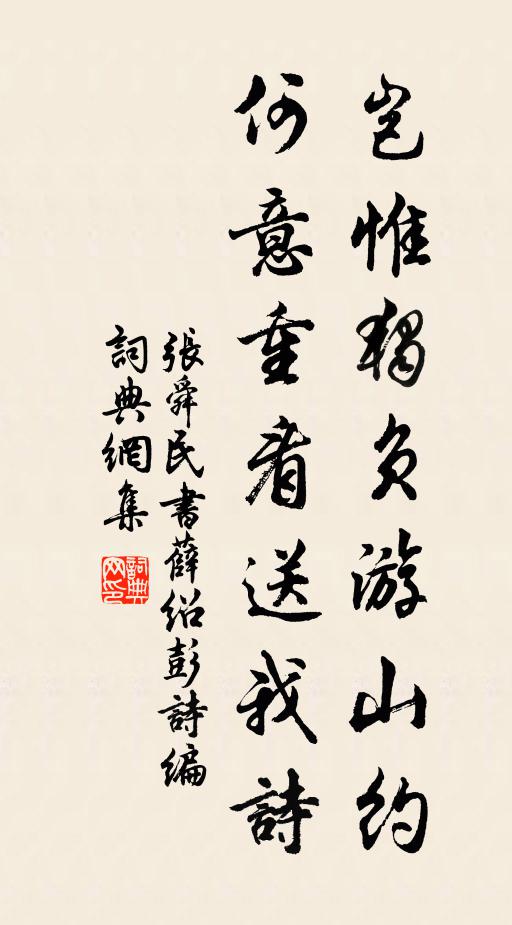 豈惟獨負游山約
何意重看送我詩
張舜民書薛紹彭詩編
詞典網集
詞典网印